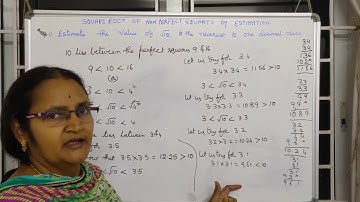 SQUARE ROOT OF NON PERFECT SQUARES BY ESTIMATION
Estimate the value of √10 to the nearest to one decimal place
10 lies between the perfect squares 9 & 16
9 < 10 < 16
3 < √10 < 4
lies between 3 & 4
3.5
that 3.5 x 3.5 = 12.25 > 10
√10 < 3.5
Let us try for 3.4
3.4 x 3.4 = 11.56 > 10
3 < √10 < 3.4
Let us try for 3.3
3.3 x 3.3 = 10.89 > 10
3 < √10 < 3.3
Let us try for 3.2
3.2 x 3.2 = 10.24 > 10
Let us try for 3.1
3.1 x 3.1 = 9.61 < 10
3.4
3.4
11.56
3.3
3.3
10.89
3.2
3.2
10.24
3.1
3.1
9.61